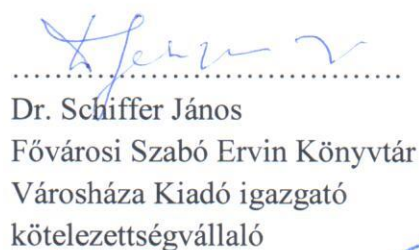 ........................................
Dr. Schiffer János
Fővárosi Szabó Ervin Könyvtár
Városháza Kiadó igazgató
kötelezettségvállaló